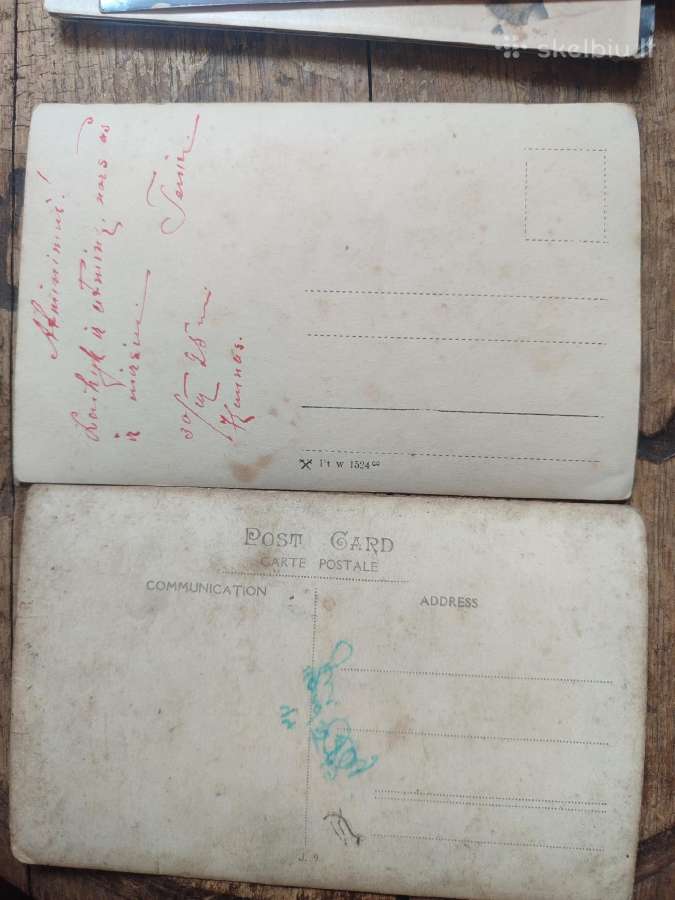 skelbiu.lt
Atminimui!
Laikyk ir atmink, nors as
ir mirsiu
30/IV 25 m
Kaunas.
Pt w 1524
POST CARD
CARTE POSTALE
COMMUNICATION
ADDRESS
J. 9.